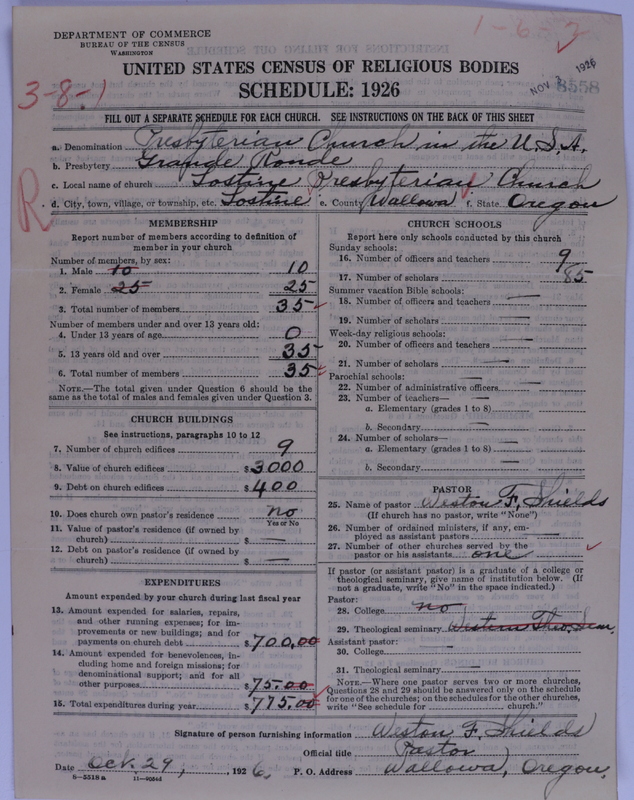 DEPARTMENT OF COMMERCE
BUREAU OF THE CENSUS
WASHINGTON
1-6-2
UNITED STATES CENSUS OF RELIGIOUS BODIES
SCHEDULE: 1926
3-8-1
NOV 3 1926
8558
FILL OUT A SEPARATE SCHEDULE FOR EACH CHURCH. SEE INSTRUCTIONS ON THE BACK OF THIS SHEET
a. Denomination Presbyterian Church in the U.S.A.
b. Presbytery Grande Ronde
c. Local name of church Lostine Presbyterian Church
R
d. City, town, village, or township, etc. Lostine e. County Wallowa f. State Oregon
MEMBERSHIP
Report number of members according to definition of
member in your church
Number of members, by sex:
1. Male 10 10
2. Female 25 25
3. Total number of members 35
Number of members under and over 13 years old:
4. Under 13 years of age 0
5. 13 years old and over 35
6. Total number of members 35
NOTE.—The total given under Question 6 should be the
same as the total of males and females given under Question 3.
CHURCH BUILDINGS
See instructions, paragraphs 10 to 12
7. Number of church edifices 9
8. Value of church edifices $3000
9. Debt on church edifices $400
10. Does church own pastor's residence no
Yes or No
11. Value of pastor's residence (if owned by
church) $ —
12. Debt on pastor's residence (if owned by
church) $ —
EXPENDITURES
Amount expended by your church during last fiscal year
13. Amount expended for salaries, repairs,
and other running expenses; for im-
provements or new buildings; and for
payments on church debt $700.00
14. Amount expended for benevolences, in-
cluding home and foreign missions; for
denominational support; and for all
other purposes $75.00
15. Total expenditures during year $775.00
CHURCH SCHOOLS
Report here only schools conducted by this church
Sunday schools:
16. Number of officers and teachers 9
17. Number of scholars 85
Summer vacation Bible schools:
18. Number of officers and teachers —
19. Number of scholars —
Week-day religious schools:
20. Number of officers and teachers —
21. Number of scholars —
Parochial schools: —
22. Number of administrative officers
23. Number of teachers—
a. Elementary (grades 1 to 8) —
b. Secondary —
24. Number of scholars—
a. Elementary (grades 1 to 8) —
b. Secondary —
PASTOR
25. Name of pastor Weston F. Shields
(If church has no pastor, write "None")
26. Number of ordained ministers, if any, em-
ployed as assistant pastors —
27. Number of other churches served by the
pastor or his assistants one
If pastor (or assistant pastor) is a graduate of a college or
theological seminary, give name of institution below. (If
not a graduate, write "No" in the space indicated.)
Pastor:
28. College no
29. Theological seminary Western Theo. Sem.
Assistant pastor:
30. College —
31. Theological seminary —
NOTE.—Where one pastor serves two or more churches,
Questions 28 and 29 should be answered only on the schedule
for one of the churches; on the schedules for the other churches,
write "See schedule for church."
Signature of person furnishing information Weston F. Shields
Official title Pastor
Date Oct. 29, 1926 P. O. Address Wallowa, Oregon.
8—5518 a